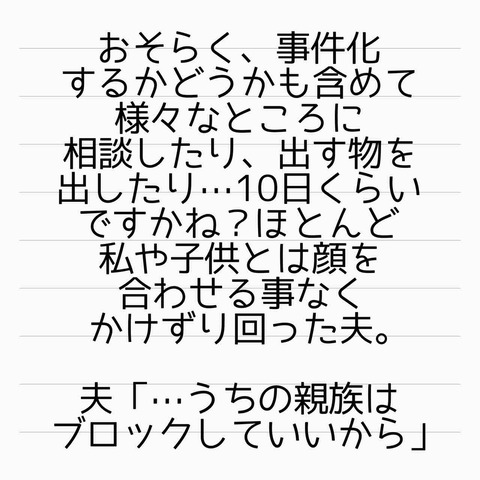 おそらく、事件化
するかどうかも含めて
様々なところに
相談したり、出す物を
出したり…10日くらい
ですかね？ほとんど
私や子供とは顔を
合わせる事なく
かけずり回った夫。
夫「…うちの親族は
ブロックしていいから」